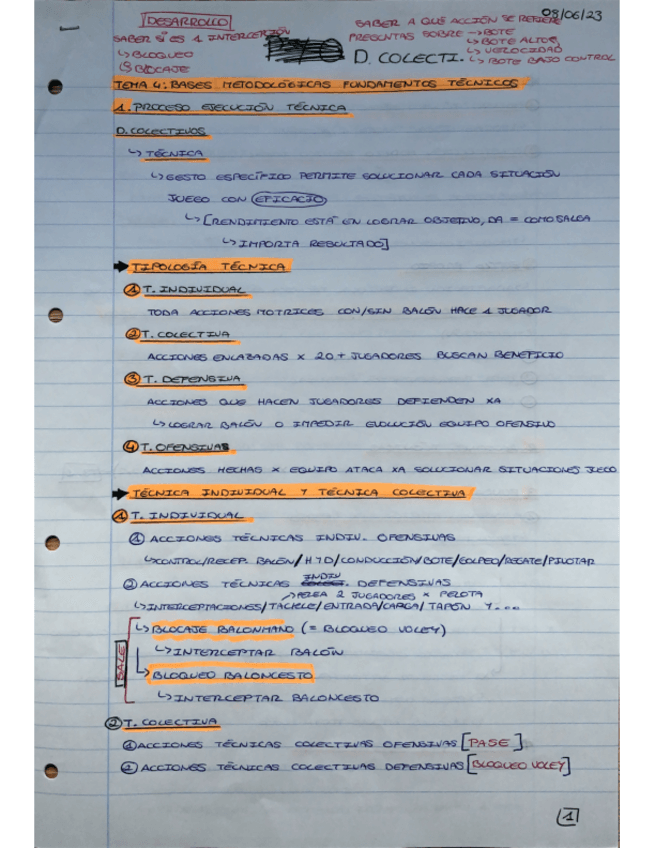 08/06/23
DESARROLLO
SABER SI ES 1 INTERCEPCIÓN
↳ BLOQUEO
↳ BLOCAJE
SABER A QUÉ ACCIÓN SE REFIERE
PREGUNTAS SOBRE → BOTE
↳ BOTE ALTO
↳ VELOCIDAD
↳ BOTE BAJO CONTROL
D. COLECTI.
TEMA 4: BASES METODOLÓGICAS FUNDAMENTOS TÉCNICOS
1. PROCESO EJECUCIÓN TÉCNICA
D. COLECTIVOS
↳ TÉCNICA
↳ GESTO ESPECÍFICO PERMITE SOLUCIONAR CADA SITUACIÓN
JUEGO CON EFICACIO
↳ [RENDIMIENTO ESTÁ EN LOGRAR OBJETIVO, DA = COMO SALGA
↳ IMPORTA RESULTADO]
→ TIPOLOGÍA TÉCNICA
① T. INDIVIDUAL
TODA ACCIONES MOTRICES CON/SIN BALÓN HACE 1 JUGADOR
② T. COLECTIVA
ACCIONES ENLAZADAS X 2 O + JUGADORES BUSCAN BENEFICIO
③ T. DEFENSIVA
ACCIONES QUE HACEN JUGADORES DEFIENDEN XA
↳ LOGRAR BALÓN O IMPEDIR EVOLUCIÓN EQUIPO OFENSIVO
④ T. OFENSIVAS
ACCIONES HECHAS X EQUIPO ATACA XA SOLUCIONAR SITUACIONES JUEGO
→ TÉCNICA INDIVIDUAL Y TÉCNICA COLECTIVA
① T. INDIVIDUAL
① ACCIONES TÉCNICAS INDIV. OFENSIVAS
↳ CONTROL/RECEP. BALÓN/H7D/CONDUCCIÓN/BOTE/GOLPEO/REGATE/PILOTAR
② ACCIONES TÉCNICAS INDIV DEFENSIVAS
→ PELEA 2 JUGADORES X PELOTA
↳ INTERCEPTACIONES/TACKLE/ENTRADA/CARGA/TAPÓN Y....
↳ BLOCAJE BALONMANO (= BLOQUEO VOLEY)
↳ INTERCEPTAR BALÓN
↳ BLOQUEO BALONCESTO
↳ INTERCEPTAR BALONCESTO
② T. COLECTIVA
① ACCIONES TÉCNICAS COLECTIVAS OFENSIVAS [PASE]
② ACCIONES TÉCNICAS COLECTIVAS DEFENSIVAS [BLOQUEO VOLEY]
1